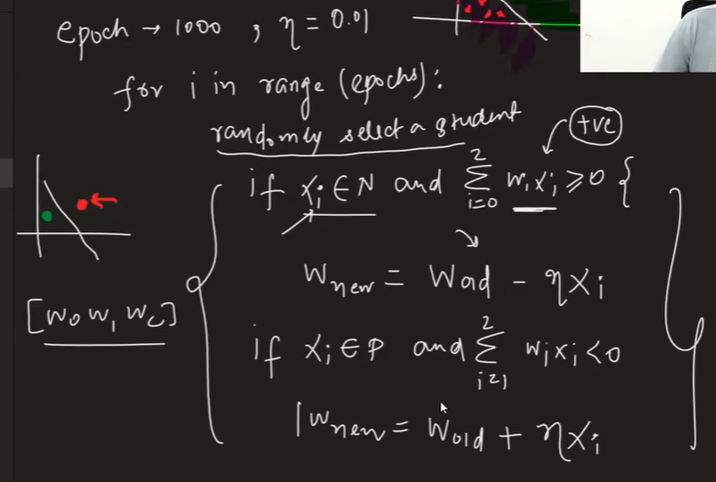 epoch → 1000 , η = 0.01
for i in range (epochs):
randomly select a student
+ve
if Xi ∈ N and Σ i=0 2 wixi ≥ 0 {
Wnew = Wold - ηXi
[W0 W1 W2]
if Xi ∈ P and Σ i=1 2 wixi < 0
Wnew = Wold + ηXi